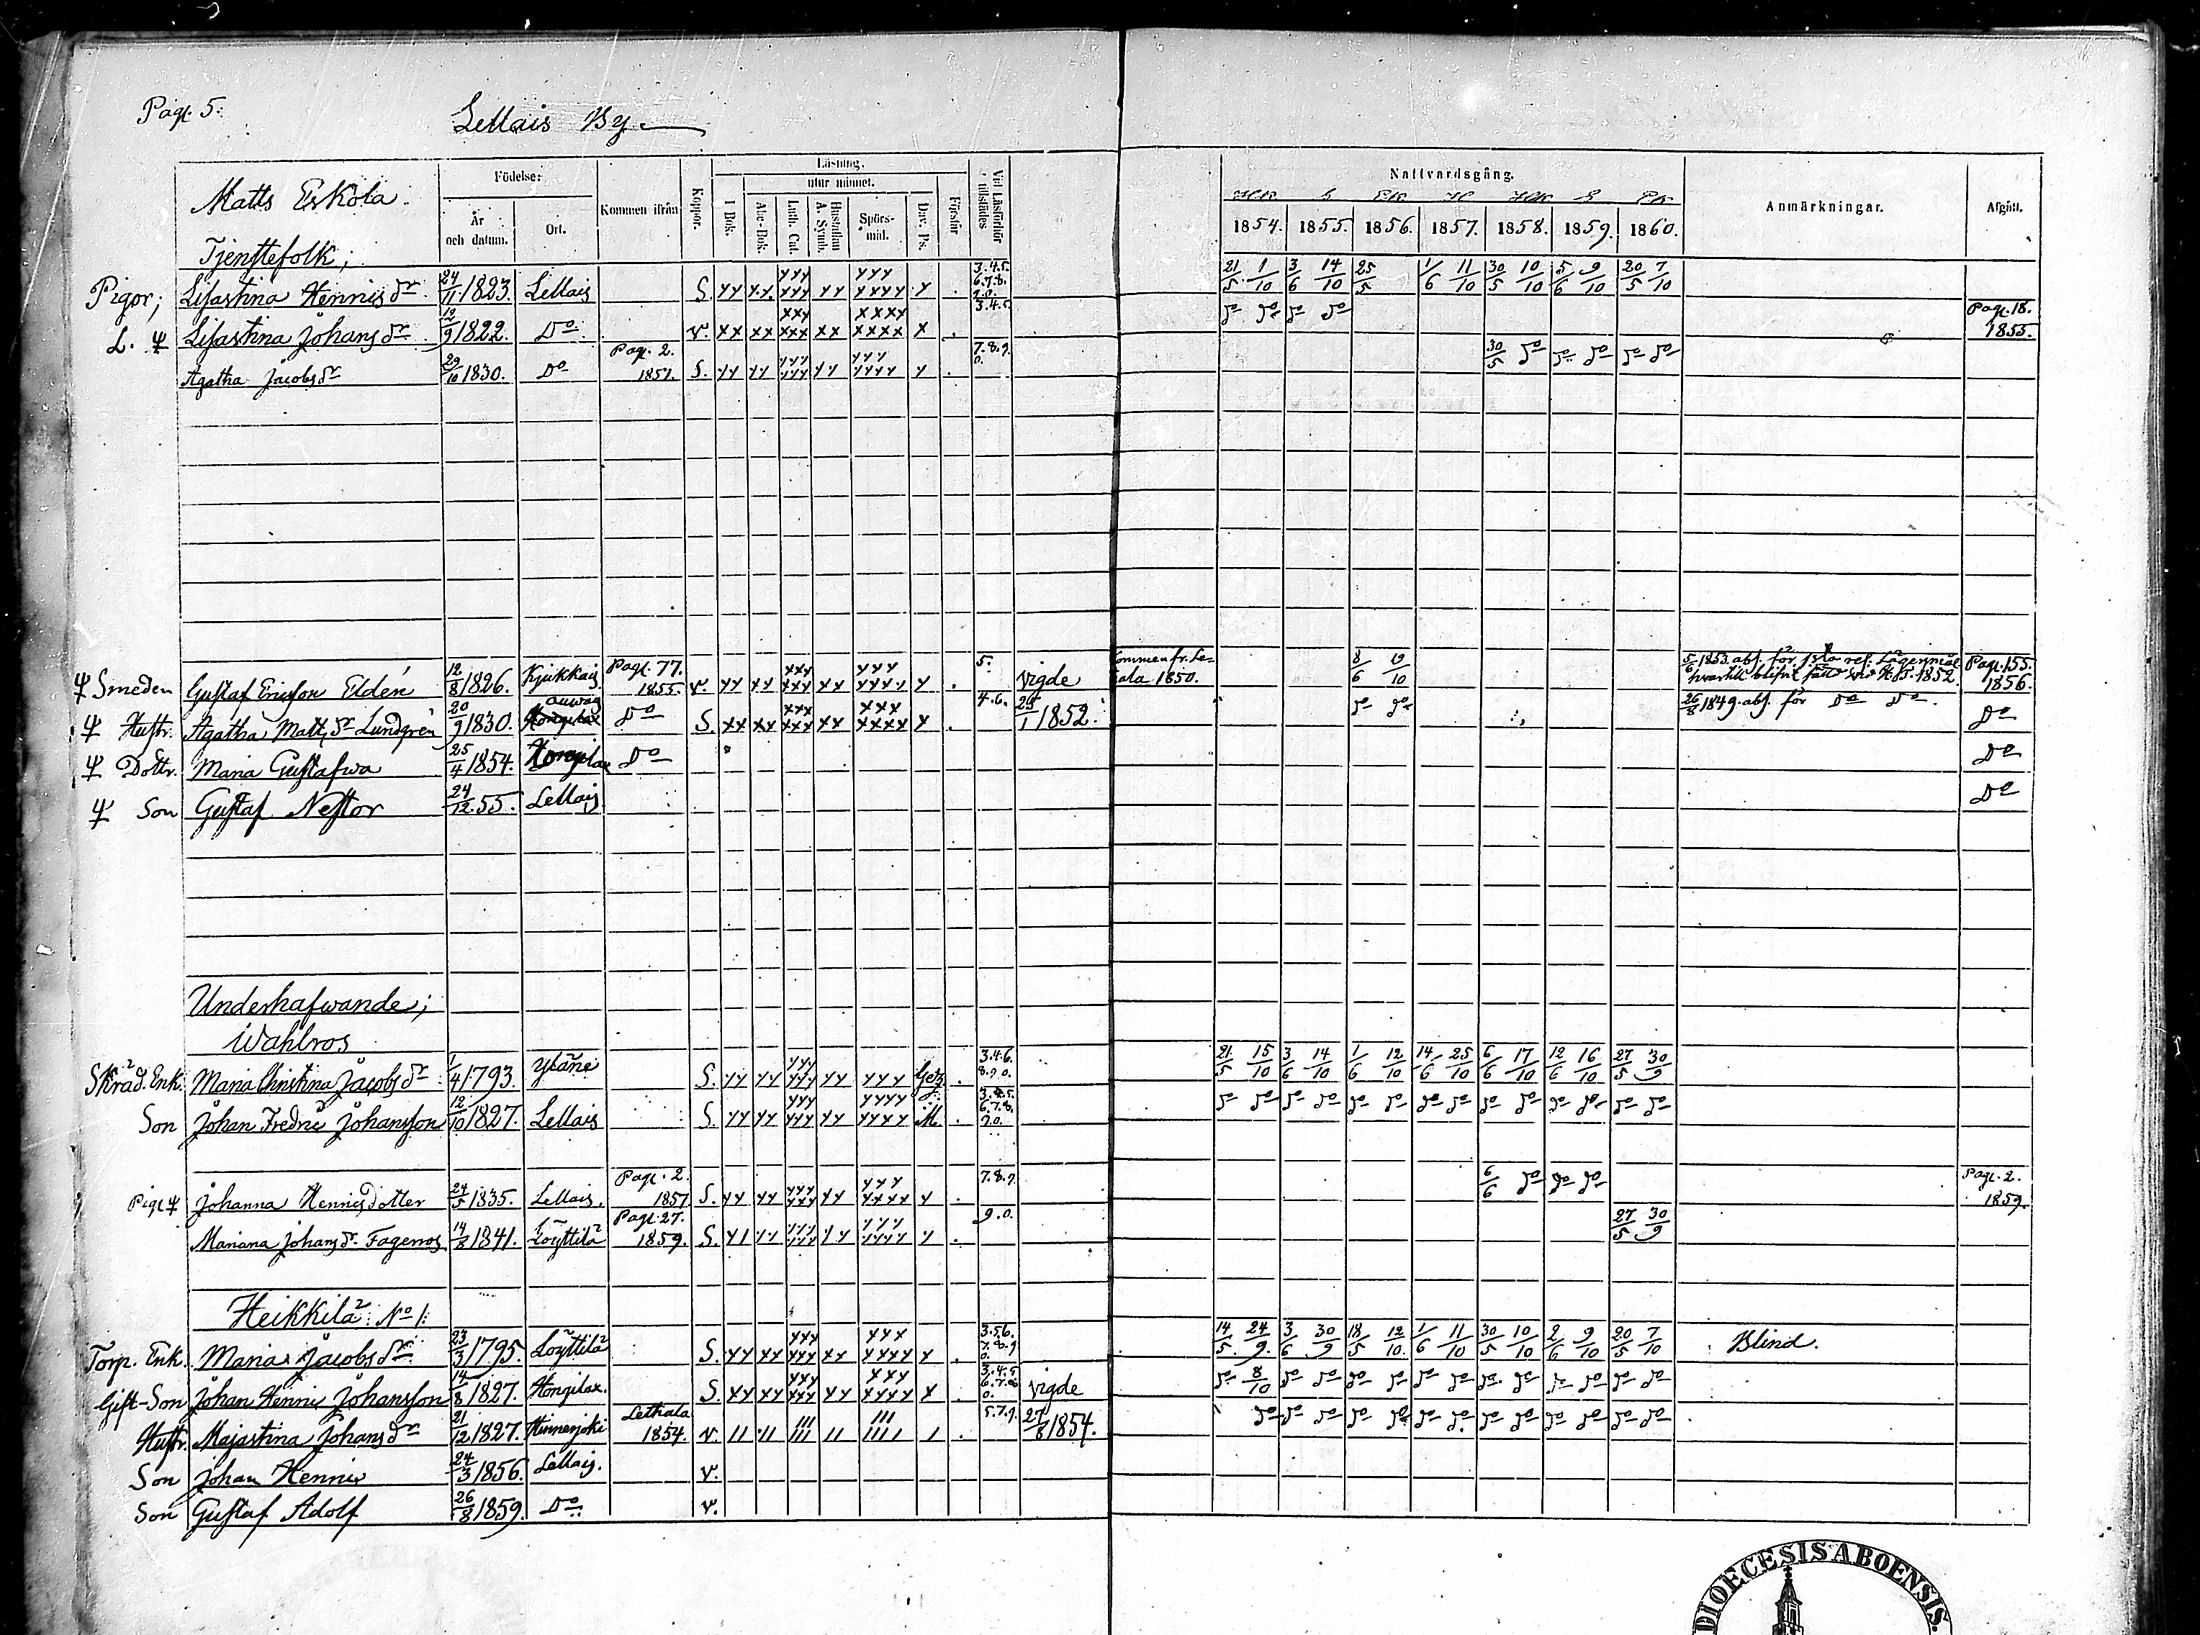 Pag. 5.
Lellais By
Matts Eskola.
Tjenstefolk;
Födelse:
År och datum.
Ort.
Kommen ifrån
Koppor.
Läsning.
utur minnet.
I Bok.
Abc-Bok.
Luth. Cat.
Hustaflan A. Symb.
Spörs-mål.
Dav. Ps.
Förstår
Vid Läsförhör tillstädes
Nattvardsgång.
1854. 1855. 1856. 1857. 1858. 1859. 1860.
Anmärkningar.
Afgått.
Pigor; Lisastina Hennis dr 24/11 1823. Lellais S. xx xx xxx xxx xx xxx xxxx x . 3.4.5. 6.7.8. 9.0. 21/5 1/10 3/6 14/10 25/5 1/6 11/10 30/5 10/10 5/6 9/10 20/5 7/10
L. Lisastina Johans dr 12/9 1822. Do v. xx xx xxx xxx xx xxxx xxxx x . 3.4.5. do do do do Pag. 18. 1855.
Agatha Jacobs dr 29/10 1830. Do Pag. 2. 1857. S. xx xx xxx xxx xx xxx xxxx x . 7.8.9. 0. 30/5 do do do do do
Smeden Gustaf Ericsson Eldén 12/8 1826. Kjukkais Pag. 77. 1855. v. xx xx xxx xxx xx xxx xxxx x . 5. vigde Kommen fr. Letala 1850. 8/6 19/10 5/6 1853. abs. för 1sta res. Lägersmål Pag. 155. 1856.
Hustr. Agatha Matts dr Lundgrén 20/9 1830. Do S. xx xx xxx xxx xx xxx xxxx x . 4.6. 25/1 1852. do do 26/8 1849. abs. för Do Do. Do
Dottr. Maria Gustafwa 25/4 1854. Hongilax Do Do
Son Gustaf Nestor 24/12 55. Lellais Do
Underhafwande;
Wahlros
Skräd. Enk. Maria Christina Jacobs dr 1/4 1793. Yläne S. xx xx xxx xxx xx xxx . 3.4.6. 8.9.0. 21/5 15/10 3/6 14/10 1/6 12/10 14/6 25/10 6/6 17/10 12/6 16/10 27/5 30/9
Son Johan Fredric Johansson 12/10 1827. Lellais S. xx xx xxx xxx xx xxxx xxxx . 6.7.8. 9.0. do do do do do do do do do do do do do do
Piga Johanna Hennis dotter 24/5 1835. Lellais. Pag. 2. 1857 S. xx xx xxx xxx xx xxx xxxx x . 7.8.9. 6/6 do do do Pag. 2. 1859.
Mariana Johans dr Fagerros 14/8 1841. Löyttilä Pag. 27. 1859. S. xx xx xxx xxx xx xxx xxxx x . 9.0. 27/5 30/9
Heikkilä No 1:
Torp. Enk. Maria Jacobs dr 23/3 1795. Löyttilä S. xx xx xxx xxx xx xxx xxxx x . 3.5.6. 7.8.9. 0. 14/5 24/9 3/6 30/9 18/5 12/10 1/6 11/10 30/5 10/10 2/6 9/10 20/5 7/10 Blind.
Gift-Son Johan Henric Johansson 14/8 1827. Hongilax. S. xx xx xxx xxx xx xxx xxxx x . 3.4.5. 6.7.8. 0. vigde do 8/10 do do do do do do do do do do do do
Hustr. Majastina Johans dr 21/12 1827. Hinnerjoki Lethala 1854. v. II II III III II III IIII I . 5.7.9. 27/8 1854. do do do do do do do do do do do do do
Son Johan Henric 24/3 1856. Lellais. v.
Son Gustaf Adolf 26/8 1859. Do v.
DIOECESIS ABOENSIS.